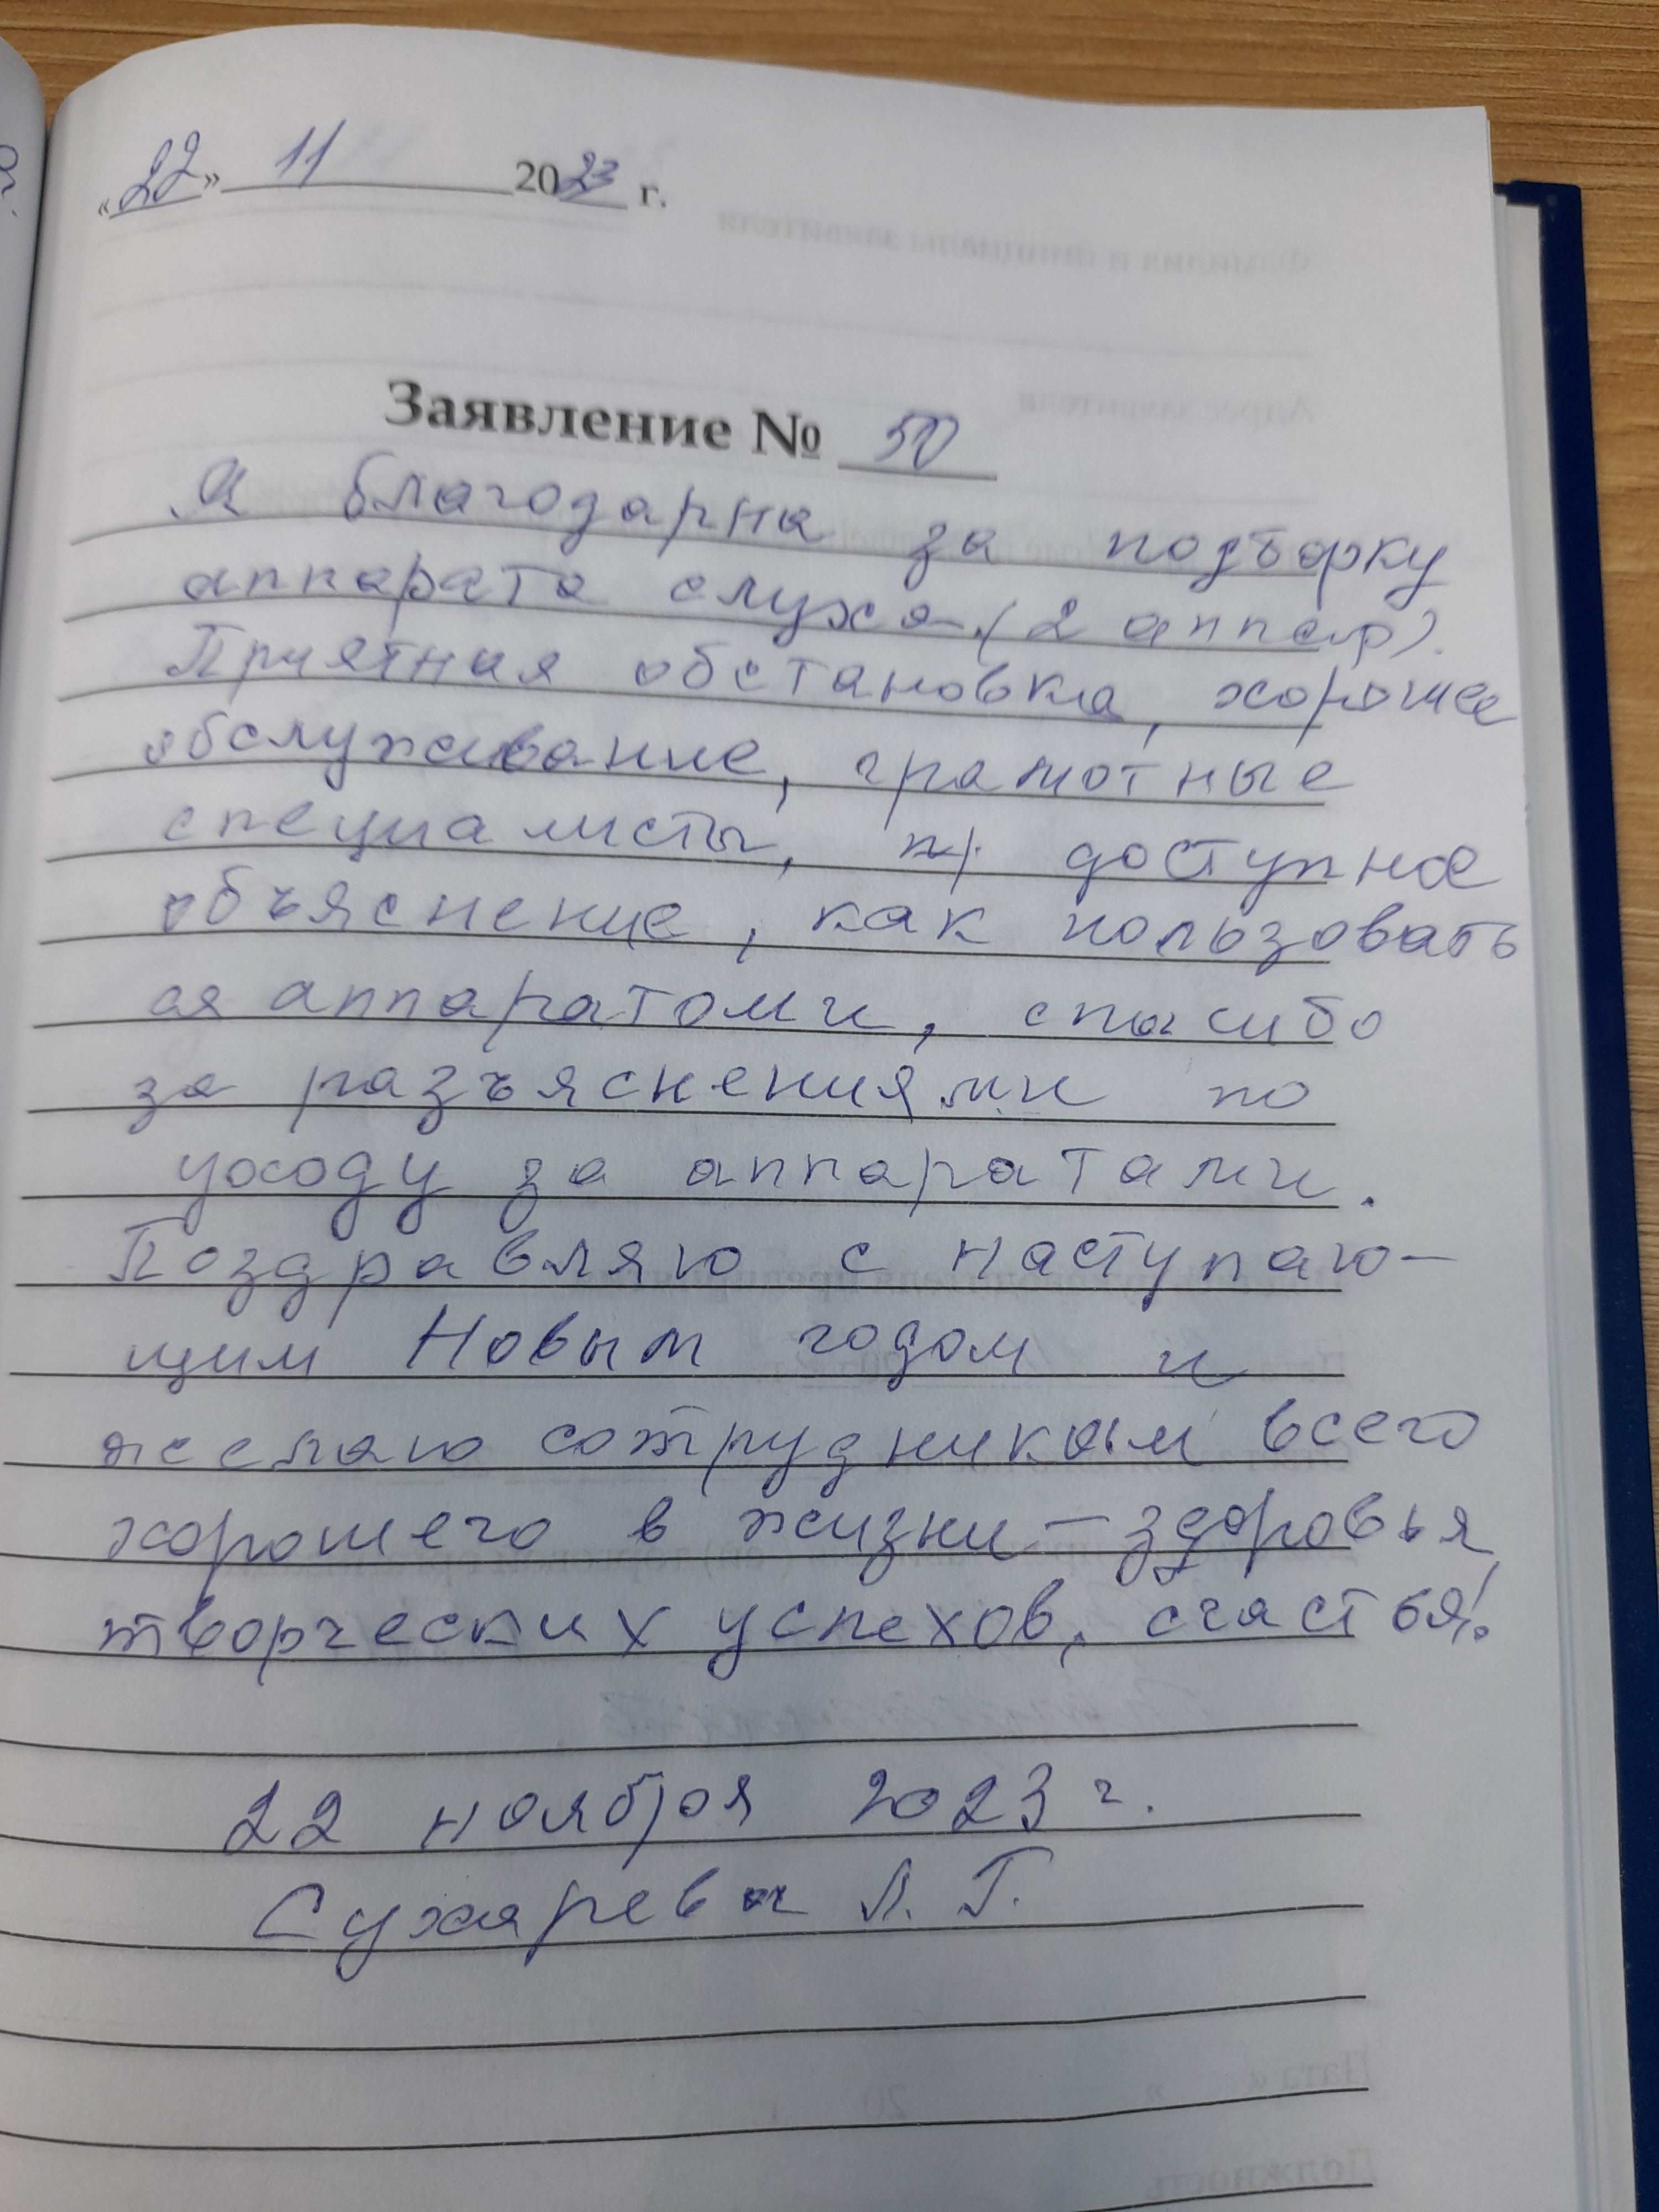 «22» 11 2023 г.
Заявление № 50
Я благодарна за подборку
аппарата слуха (2 аппар).
Приятная обстановка, хорошее
обслуживание, грамотные
специалисты, доступное
объяснение, как пользовать
ся аппаратоми, спасибо
за разъяснениями по
уходу за аппаратами.
Поздравляю с наступаю-
щим Новым годом и
желаю сотрудникам всего
хорошего в жизни – здоровья,
творческих успехов, счастья!
22 ноября 2023 г.
Сухарева Л. Г.